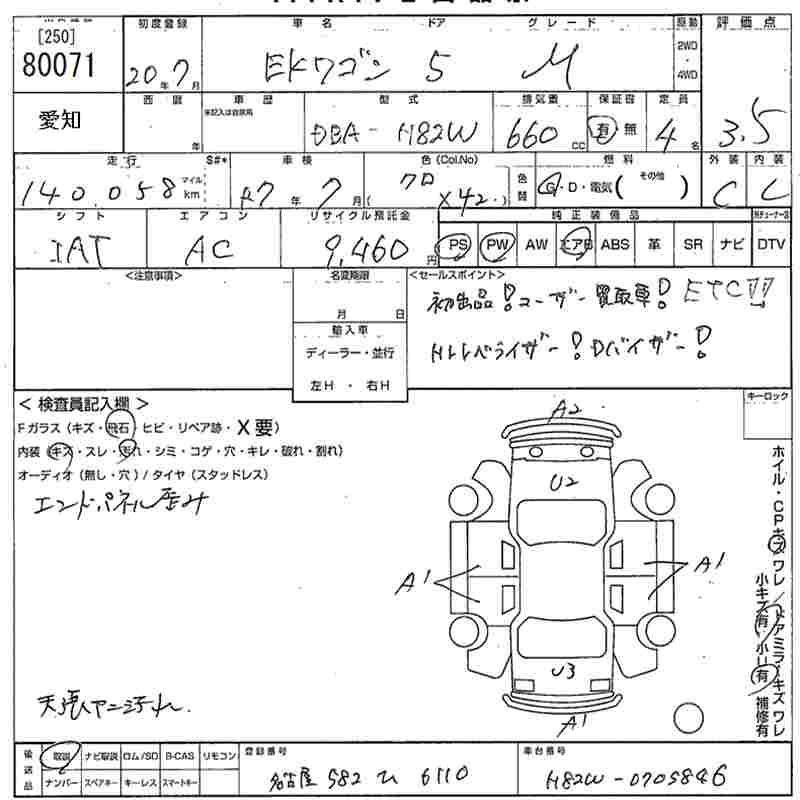 [250]
80071
初度登録 車名 ドア グレード 原動 評価点
20年7月 EKワゴン 5 M 2WD・4WD 3.5
愛知
西暦 年 車歴 ※記入は自家用 型式 排気量 保証書 定員
DBA-H82W 660cc 有 無 4名
走行 S#* 車検 色(Col.No) 色替 燃料 外装 内装
140.058 マイル km R7年7月 クロ (X42) G・D・電気( その他 ) C C
シフト エアコン リサイクル預託金 純正装備品
IAT AC 9,460円 PS PW AW エアB ABS 革 SR ナビ DTV
<注意事項> 名変期限 <セールスポイント>
月 日 初出品!ユーザー買取車!ETC!!
輸入車
ディーラー・並行 Hレベライザー!Dバイザー!
左H・右H
< 検査員記入欄 > キーロック
Fガラス(キズ・飛石 ヒビ・リペア跡・X要)
内装(キズ・スレ・汚れ・シミ・コゲ・穴・キレ・破れ・割れ)
オーディオ(無し・穴)/タイヤ(スタッドレス)
エンドパネル歪み
A2
U2
A1 A1
U3
A1
ホイル・CPキズ ワレ/ドアミラーキズ ワレ
小キズ有・小U有 補修有
天張ヤニ汚れ.
後送品 取説 ナビ取説 ロム/SD B-CAS リモコン 登録番号 車台番号
ナンバー スペアキー キーレス スマートキー 名古屋 582 ひ 6110 H82W-0705846